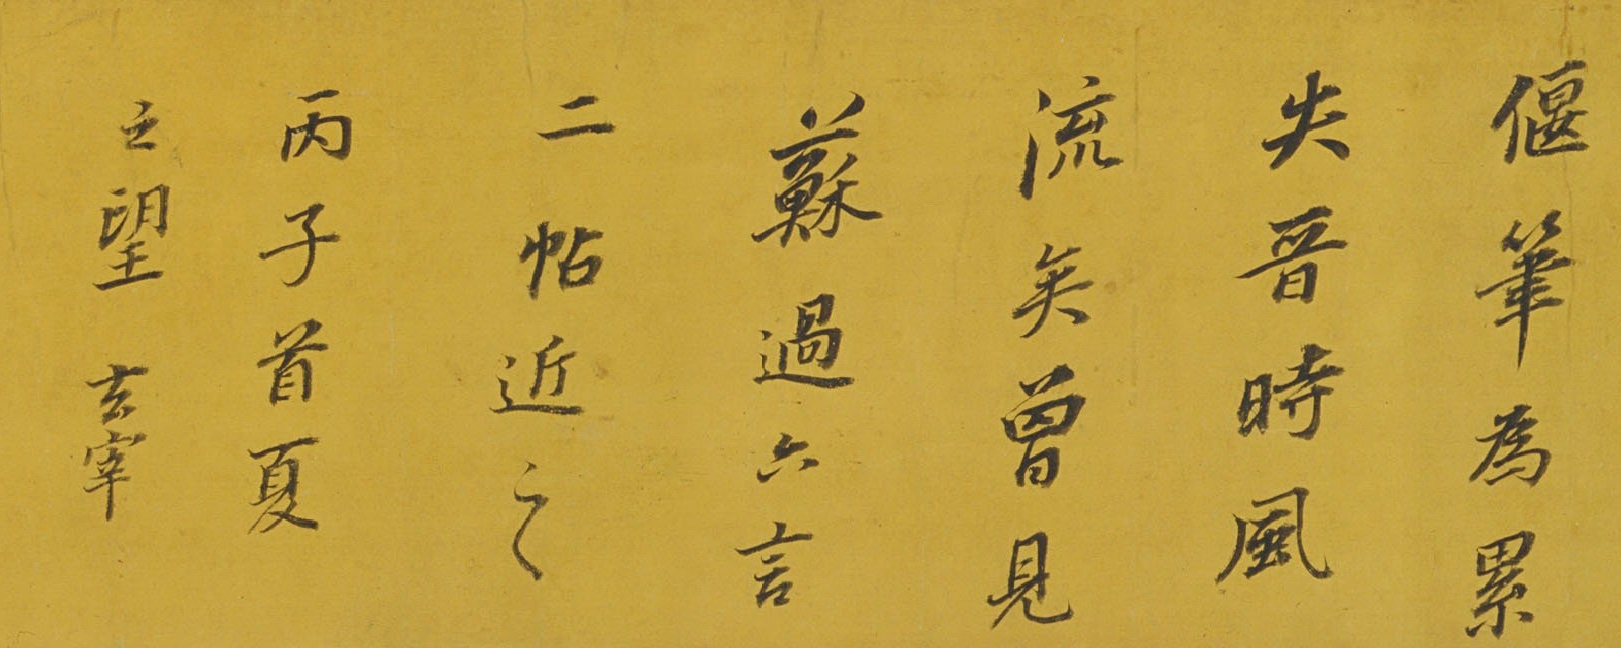 偃筆為累
失晉時風
流矣曾見
蘇過六言
二帖近之
丙子首夏
之望 玄宰